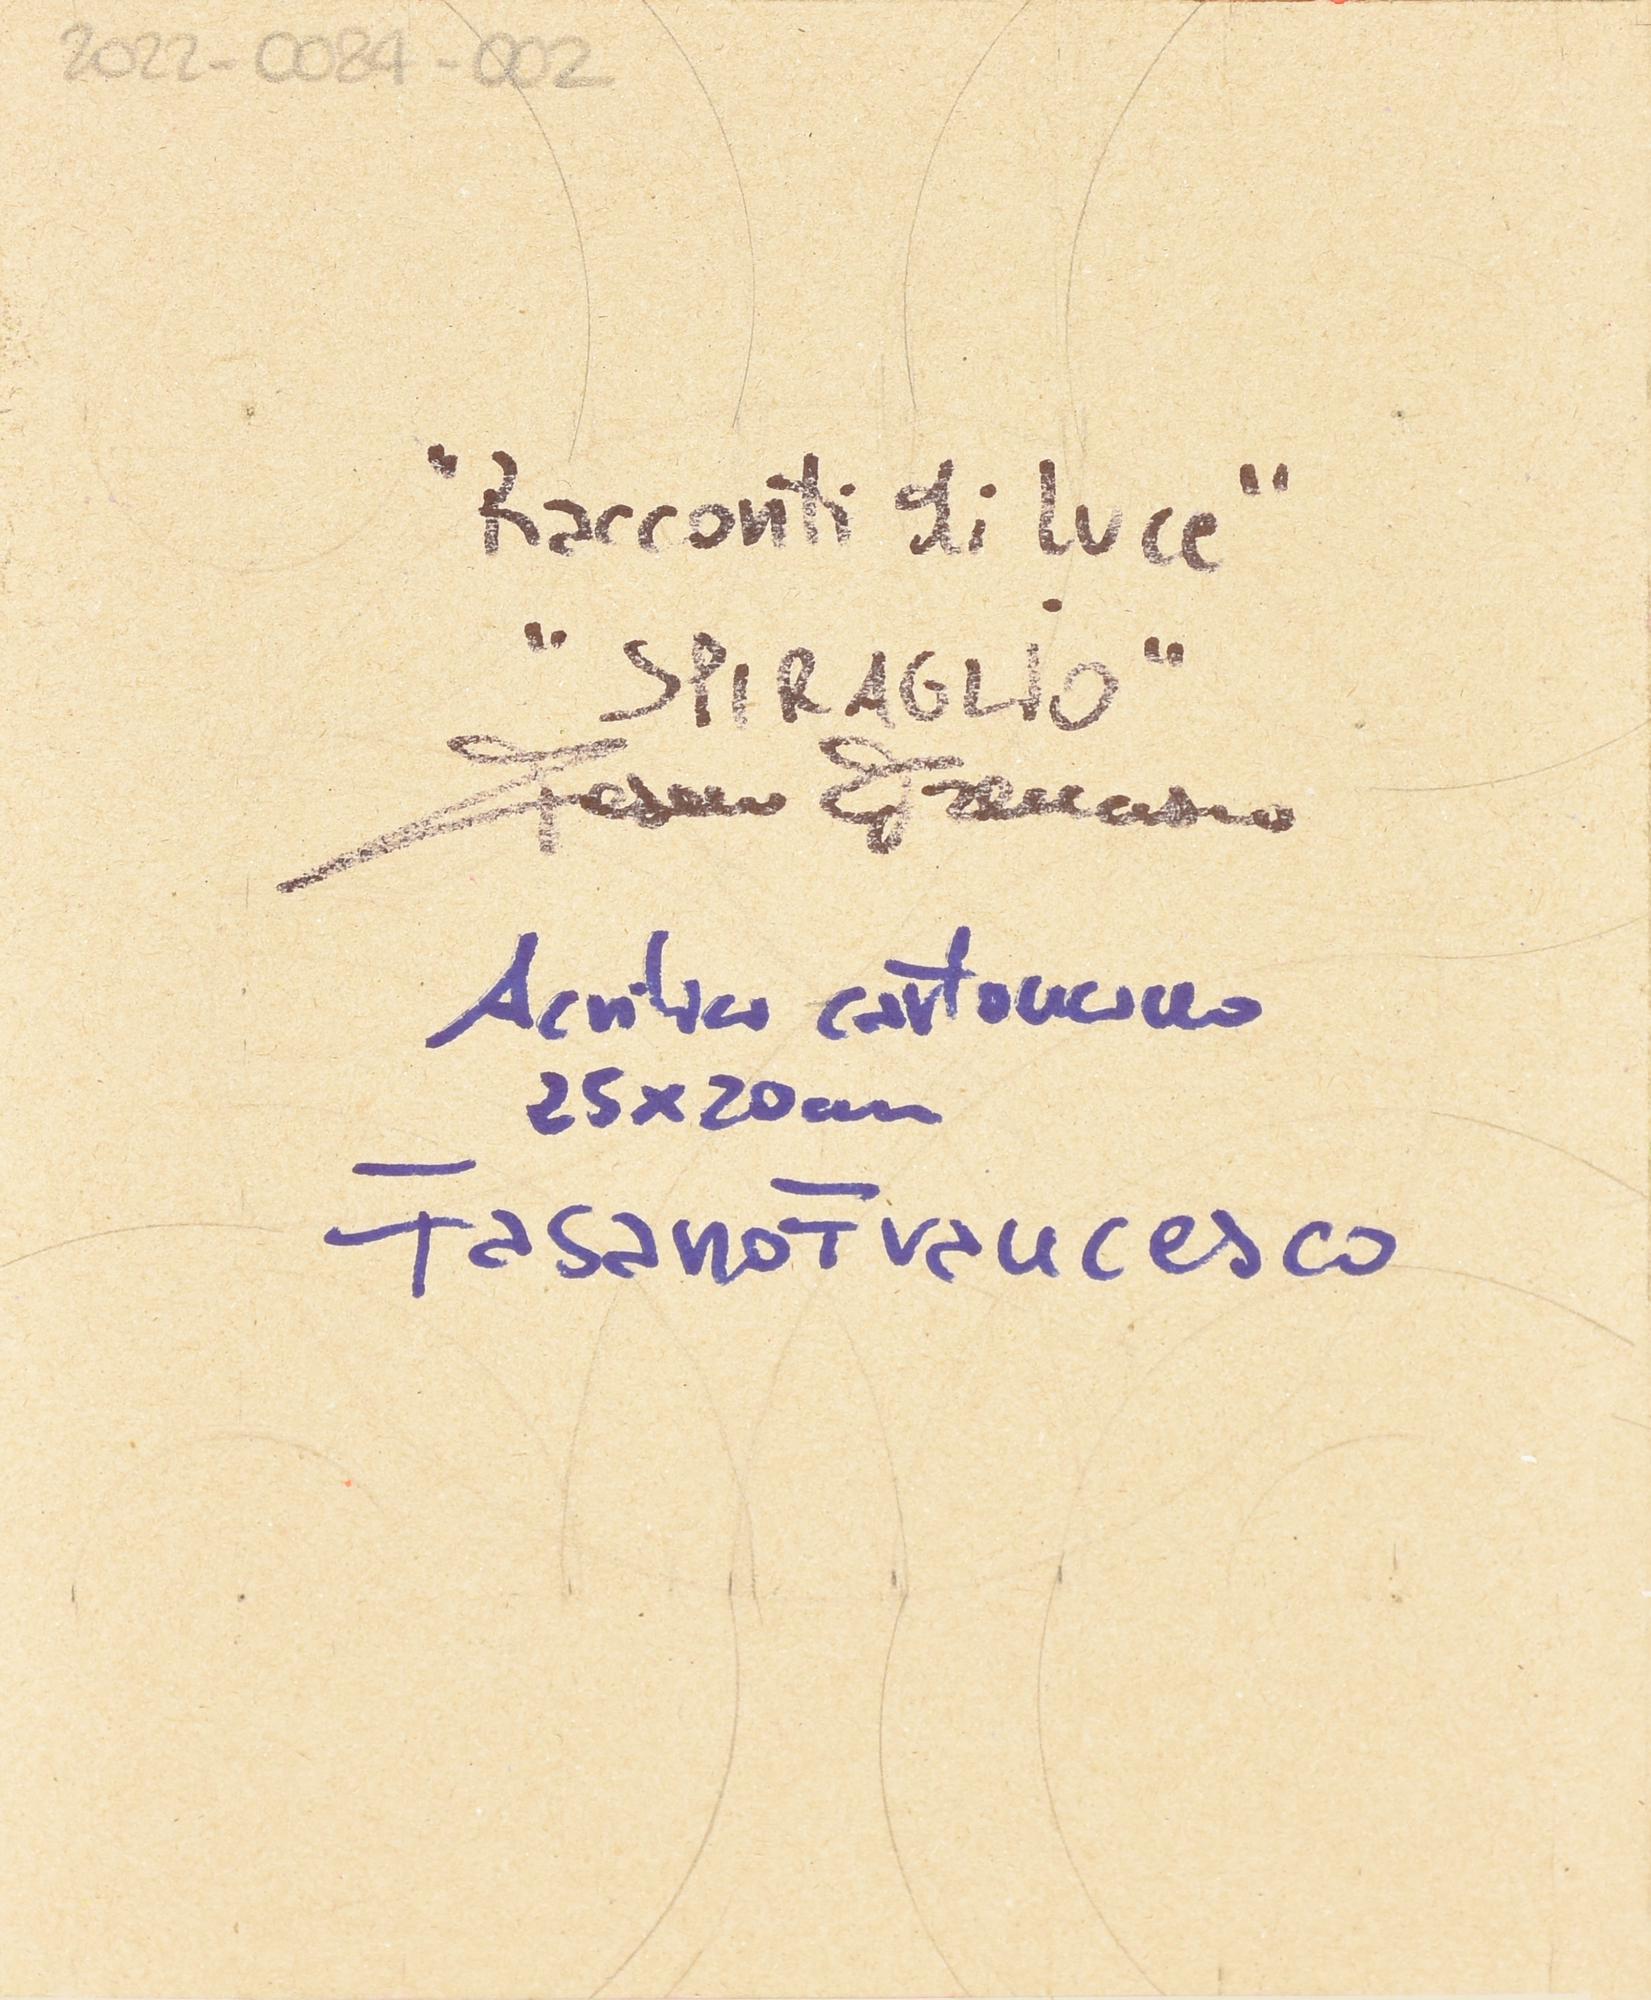 2022-0084-002
"Racconti di luce"
"SPIRAGLIO"
Fasano Francesco
Acrilico cartoncino
25x20cm
Fasano Francesco